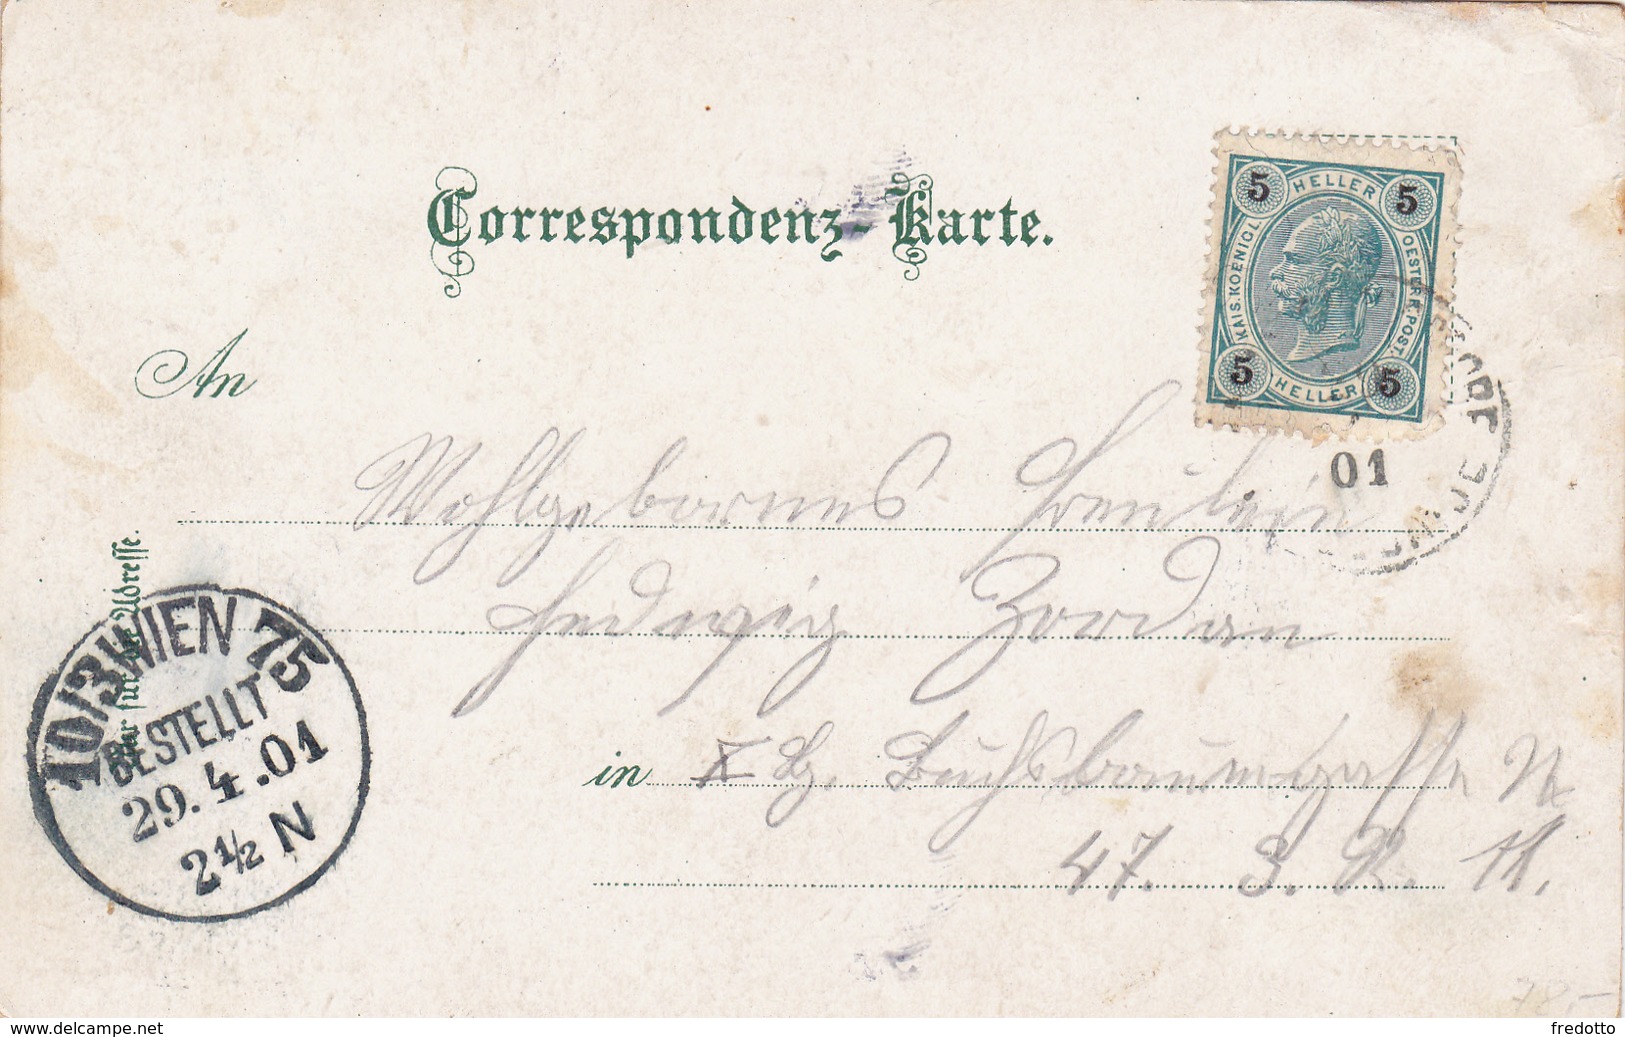 Correspondenz-Karte.
5 HELLER 5
KAIS. KOENIGL. OESTERR. POST.
5 HELLER 5
An
01
Wohlgebornes Freulein
Hedwig Zordan
in X Bz. Buchsbaumgasse N
47. 3. 11.
Nur für die Adresse.
10/3 WIEN 75
BESTELLT
29.4.01
2½ N
www.delcampe.net
fredotto